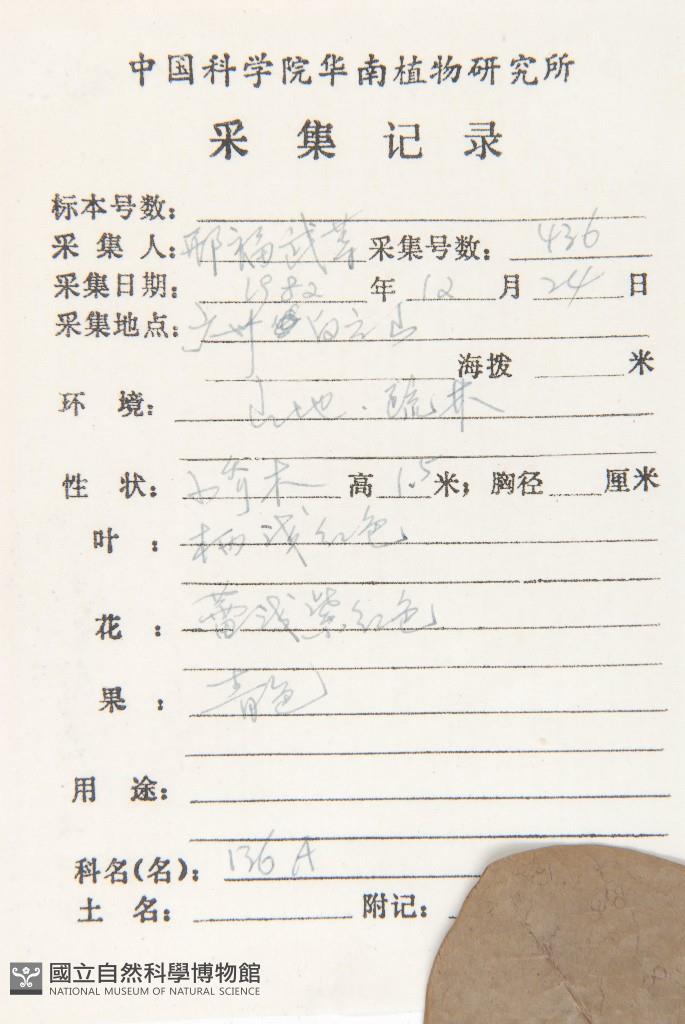 中国科学院华南植物研究所
采集记录
标本号数：
采集人：邢福武等 采集号数：436
采集日期：1982年12月24日
采集地点：广州白云山
海拨 米
环境：山地．疏林
性状：小乔木 高1.5米；胸径 厘米
叶：柄浅红色
花：蕾浅紫红色
果：青色
用途：
科名(名)：136A
土名： 附记：
國立自然科學博物館
NATIONAL MUSEUM OF NATURAL SCIENCE